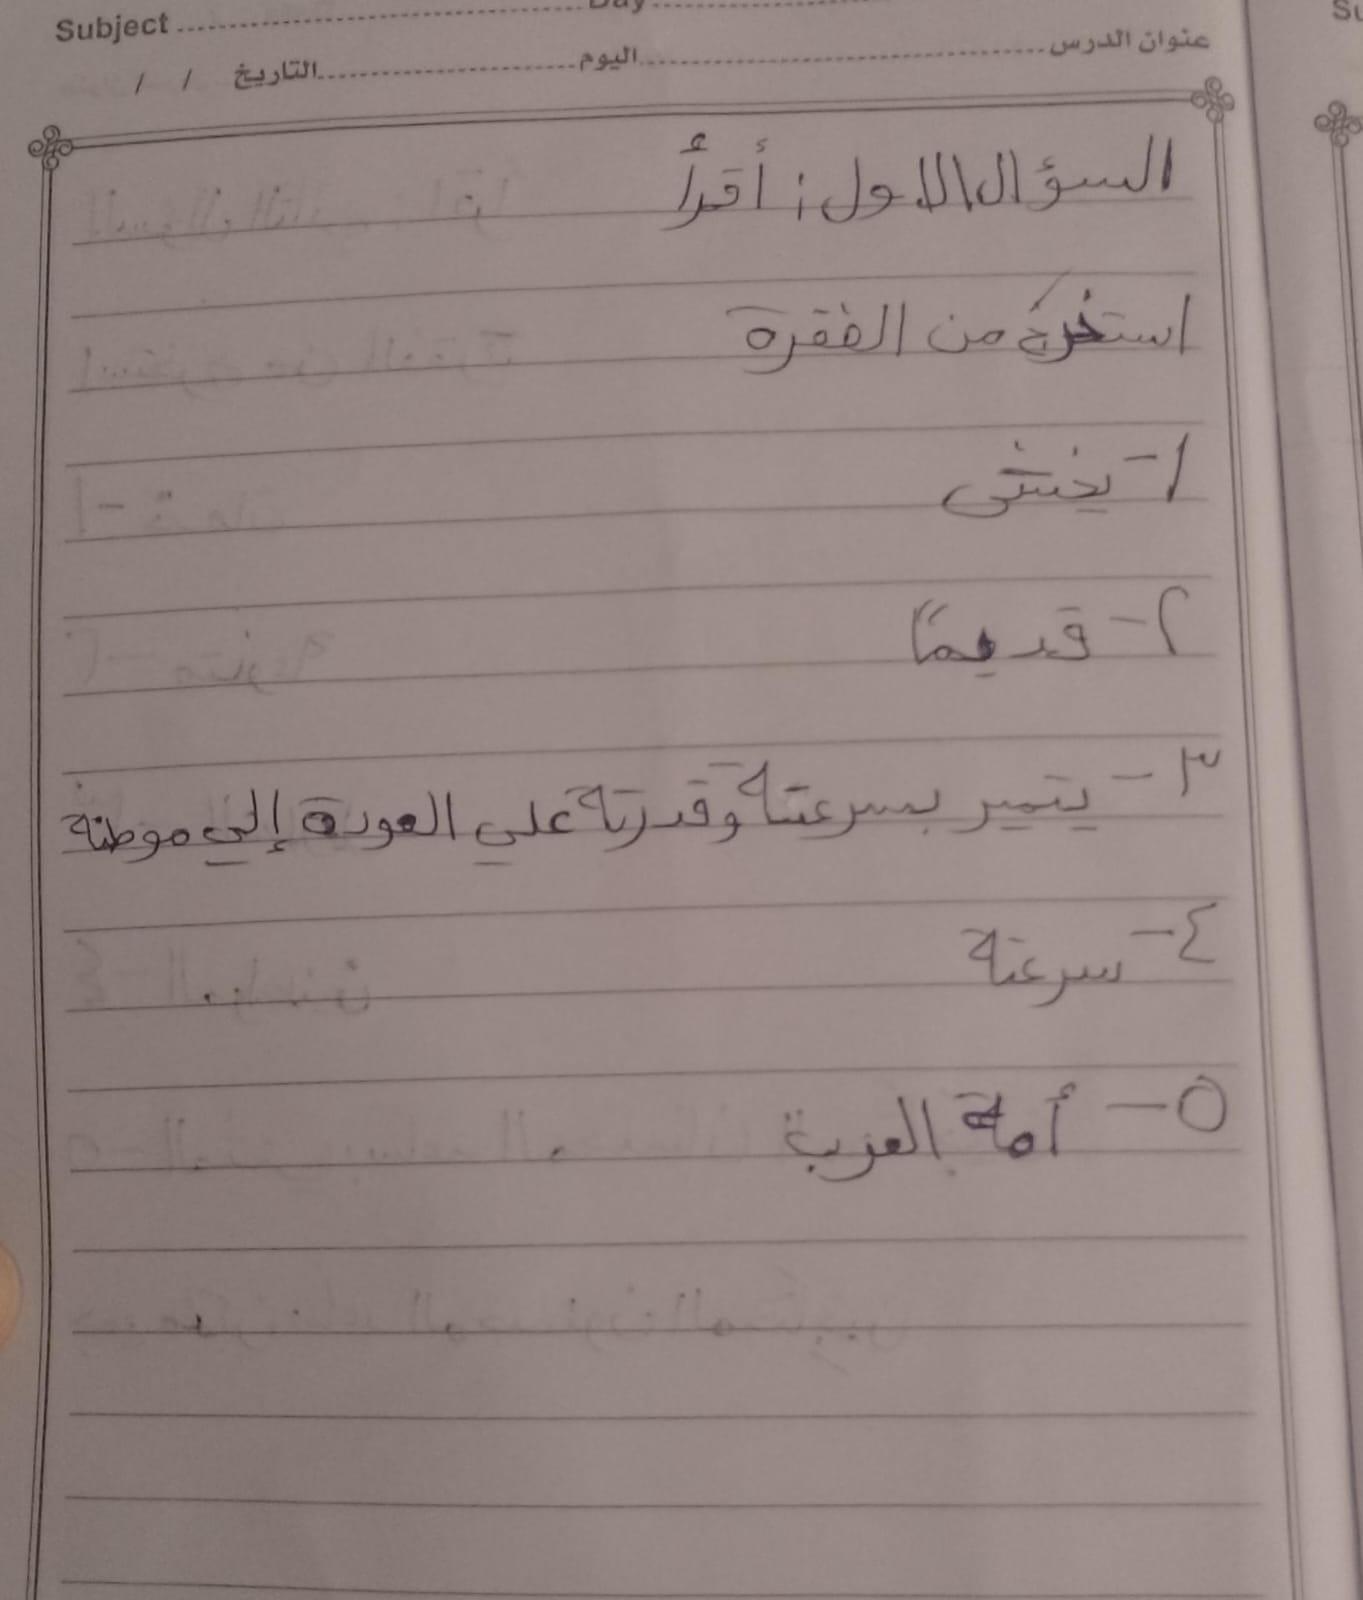 Subject Day
عنوان الدرس اليوم التاريخ / /
السؤال الاول : أقرأ
استخرج من الفقرة
١- يخشى
٢- قديمًا
٣- يتميز بسرعتة وقدرتة علي العودة إلي موطنة
٤- سرعتة
٥- أمة العربية